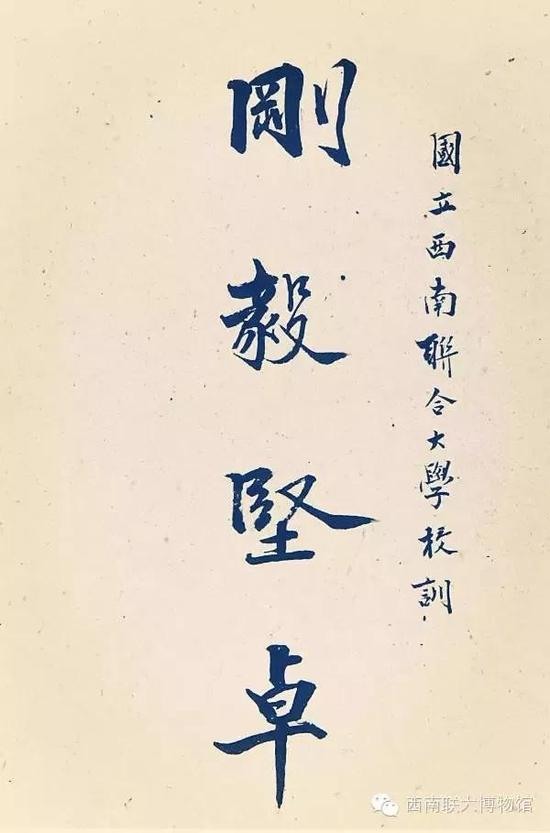 國立西南聯合大學校訓
剛毅堅卓
西南联大博物馆